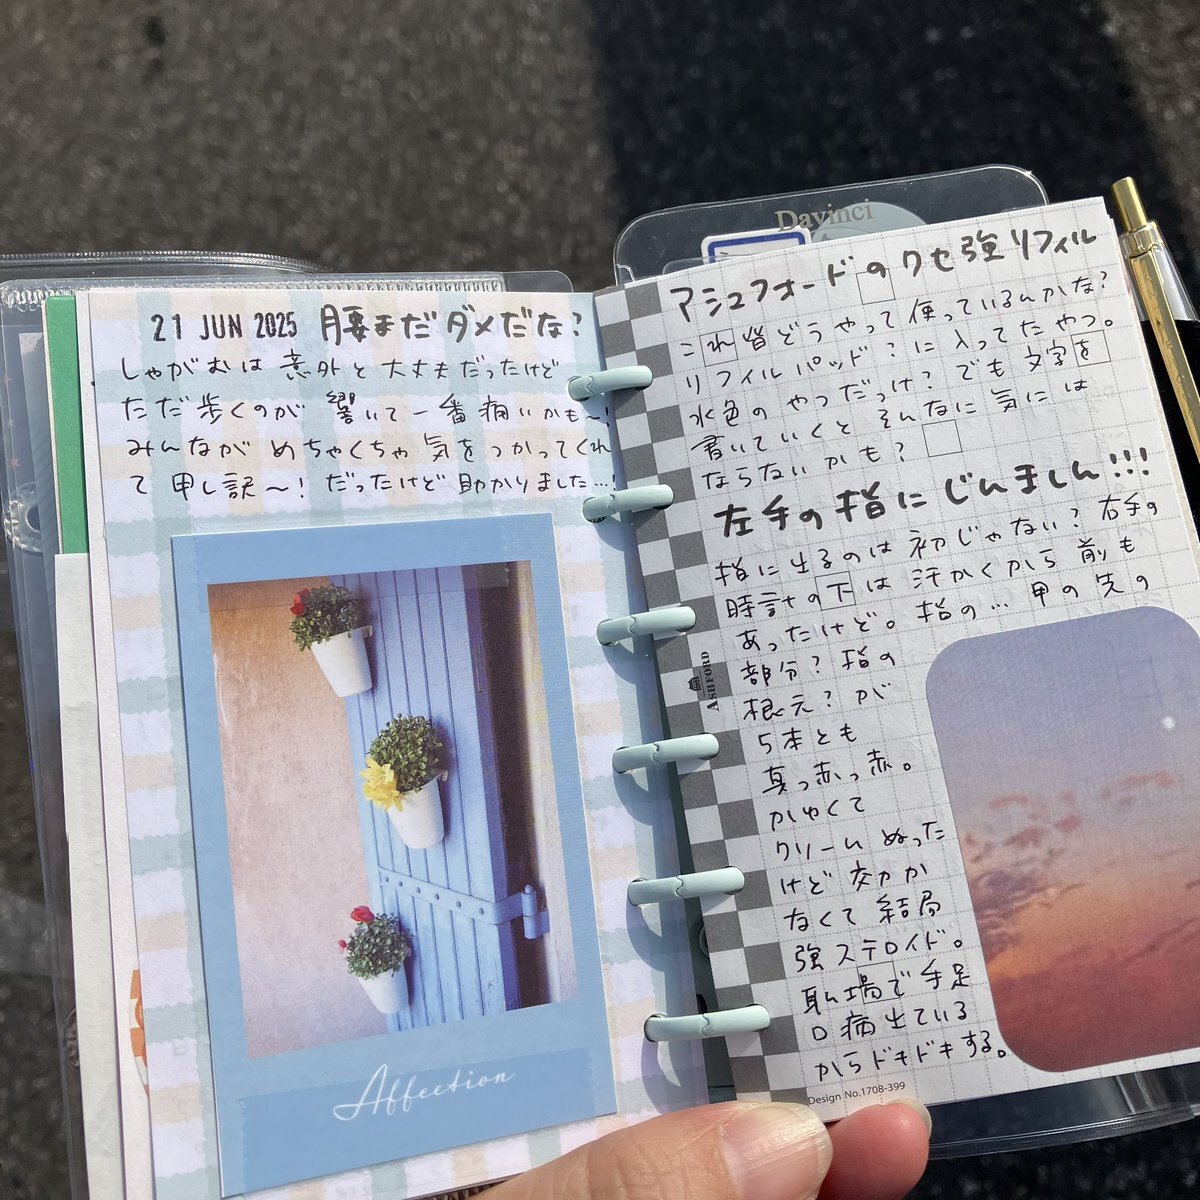 21 JUN 2025 腰まだダメだな?
しゃがむは 意外と大丈夫だったけど
ただ歩くのが 響いて一番痛いかも〜!
みんなが めちゃくちゃ 気をつかってくれ
て 申し訳〜! だったけど 助かりました…!
Affection
Davinci
アシュフォードのクセ強リフィル
これ皆どうやって使っているんかな?
リフィルパッド?に入ってたやつ。
水色のやつだっけ?でも文字を
書いていくと そんなに気には
ならないかも?
左手の指にじんましん!!!
指に出るのは初じゃない?右手の
時計の下は汗かくから前も
あったけど。指の…甲の先の
部分?指の
根元?が
5本とも
真っ赤っ赤。
かゆくて
クリームぬった
けど効か
なくて結局
強ステロイド。
職場で手足
口病出ている
からドキドキする。
ASHFORD
Design No.1708-399